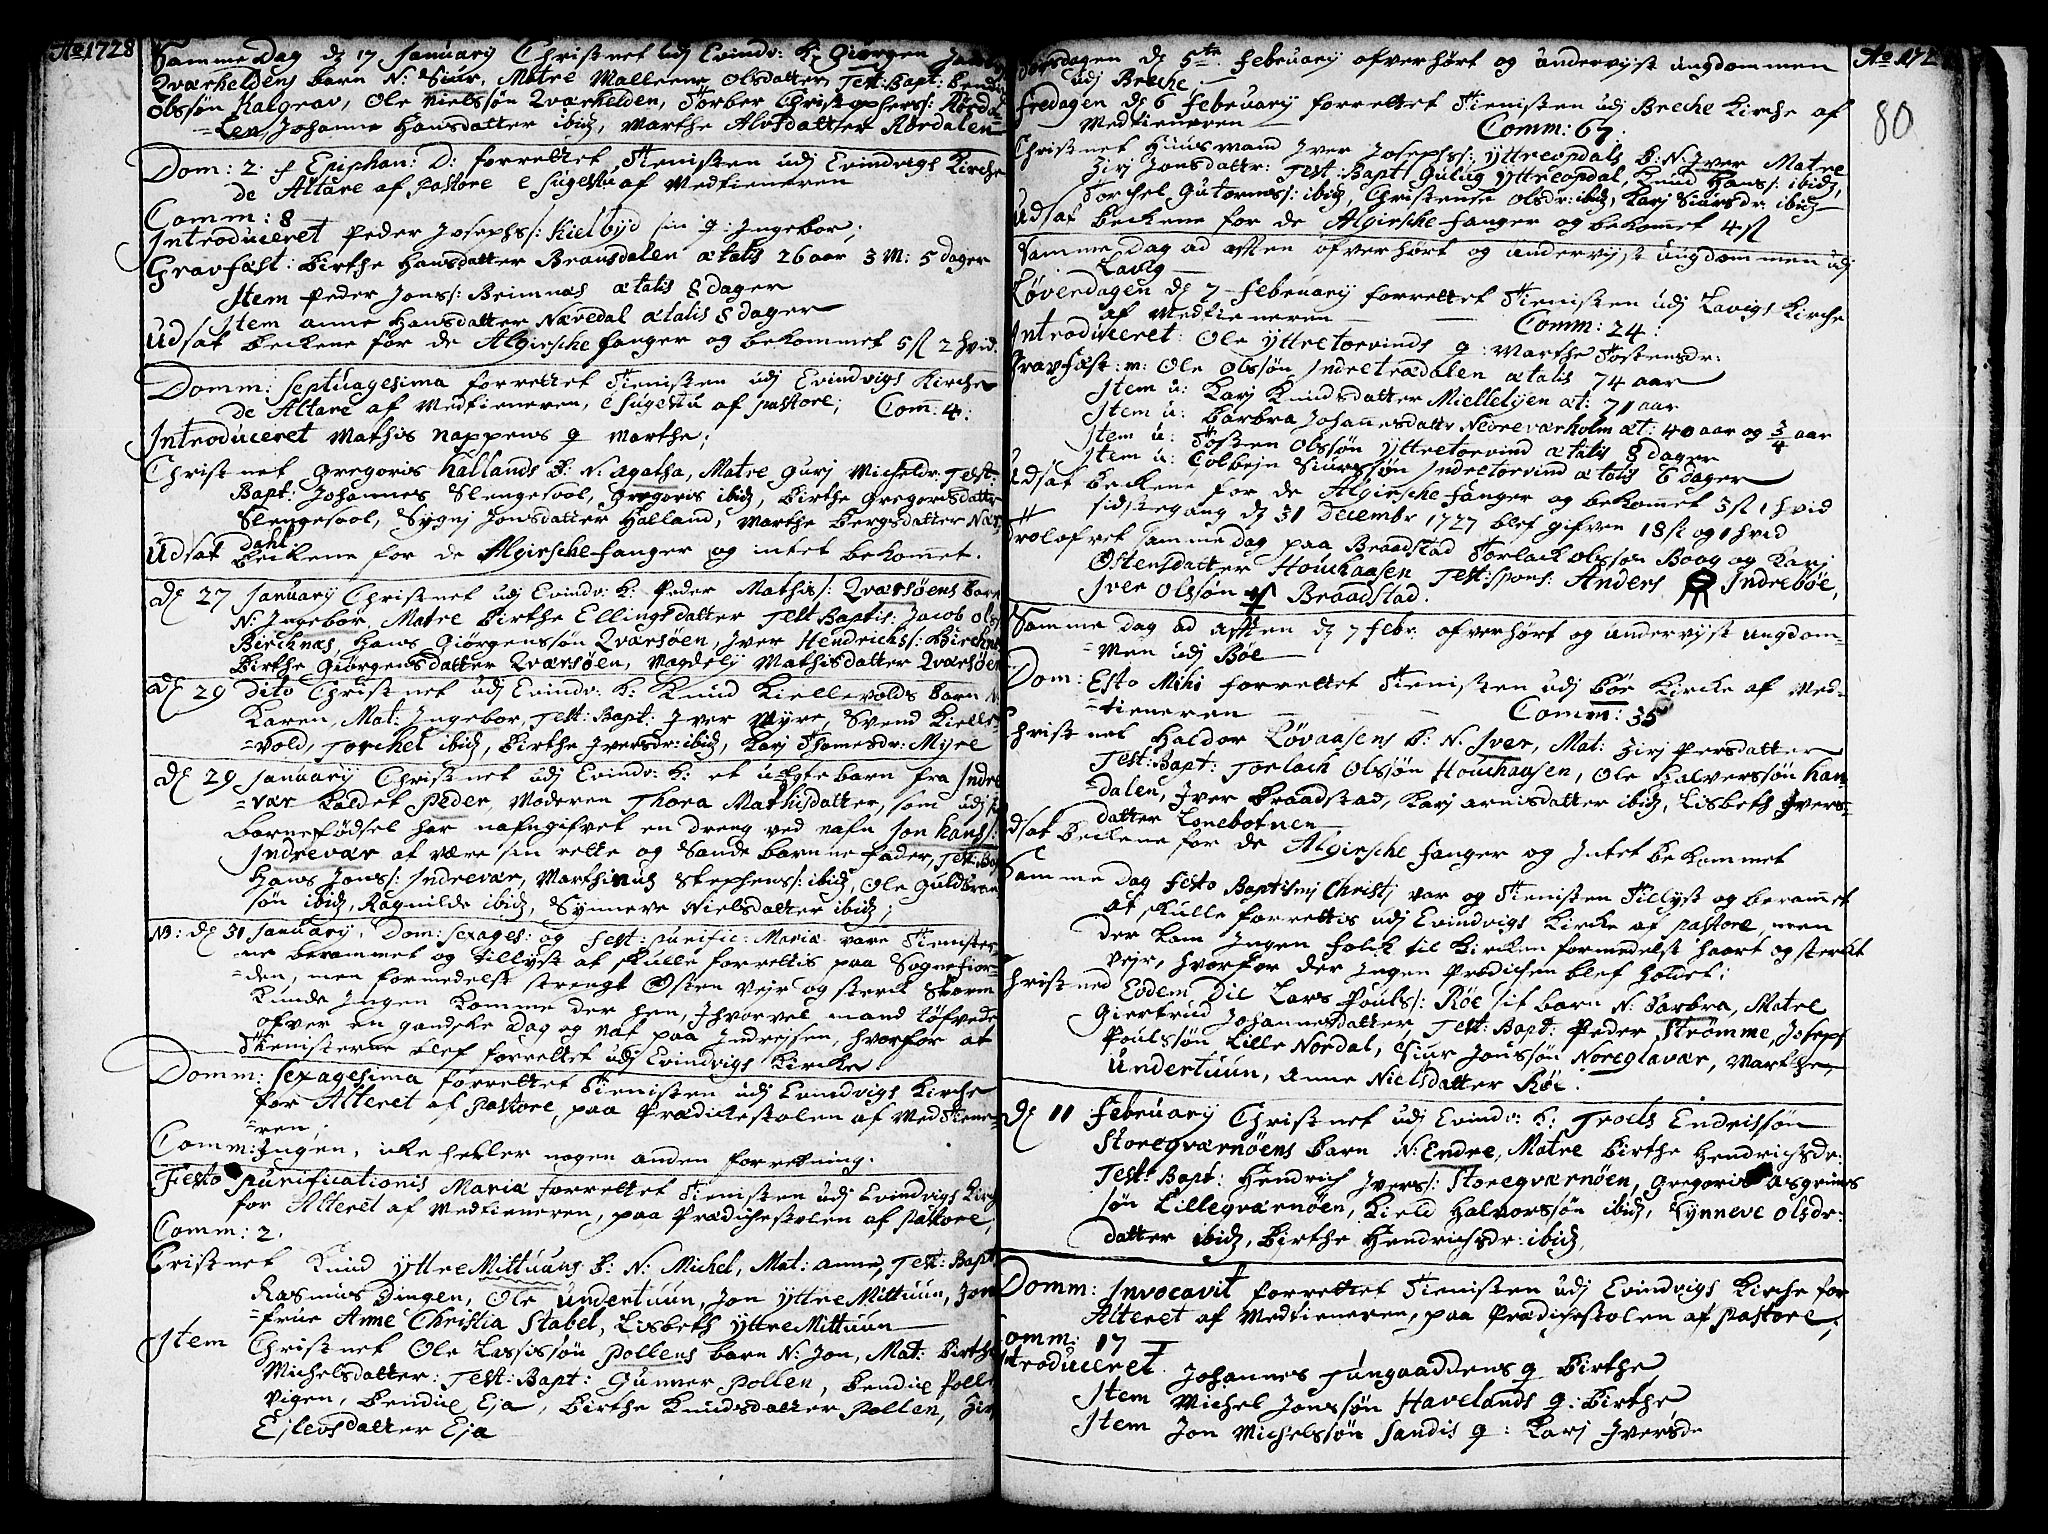 Ao 1728
Samme Dag d. 17 January Christnet udj Evindv: K: Giørgen
Qværheldens barn N: Siur, Matre Malleene Olsdatter, Test: Bapt:
Olssøn Kalgrav, Ole Nielssøn Qværhelden, Torber Christophers:
len, Johanne Hansdatter ibid, Marthe Alvsdatter Røedalen
Dom: 2. p Epiphan: D: forrettet Tienisten udj Evindvigs Kirche
de Altare af Pastore e sugestu af Medtieneren
Comm: 8
Introduceret Peder Josephs: Kielbyd sin q: Ingebor;
Gravfæst: Birthe Hansdatter Bransdalen ætatis 26 aar 3 M: 5 dager
Item Peder Jons: Breimnæs ætatis 8 dager
Item Anne Hansdatter Nævedal ætatis 8 dager
Udsat Beckene for de Algirsche fanger og bekommet 5 st 2 hvid.
Domm: Septuagesima forrettet Tienisten udj Evindvigs Kirche
de Altare af Medtieneren, e sugestu af Pastore; Com: 4:
Introduceret Mathis Nappens q Marthe;
Christnet Gregoris Hallands B: N. Agatha, Matre Gurj Michelsdr: Test:
Bapt: Johannes Slengesool, Gregoris ibid, Birthe Gregorisdatter
Slengesool, Sygnj Jonsdatter Halland, Marthe Bergsdatter Nær
dahl.
Udsat Beckene for de Algirsche fanger og intet bekommet.
d. 27 January Christnet udj Evindv: K: Peder Mathis: Qværsøens barn
N. Ingebor, Matre Birthe Ellingsdatter Test Baptis: Jacob Ols:
Bircknæs, Hans Giørgenssøn Qværsøen, Iver Hendrichs: Bircknæs
Birthe Giørgensdatter Qværsøen, Magdelj Mathisdatter Qværsøen
d. 29 Dito Christnet udj Evindv: K: Knud Kiellevolds barn N:
Karen, Mat: Ingebor, Test: Bapt: Iver Myre, Svend Kielle
vold, Torchel ibid, Birthe Iversdr: ibid, Karj Thomesdr: Myre
d. 29 January Christnet udj Evindv: K: et uægte barn fra Indre
vær kaldet Peder, Moderen Thora Mathisdatter, som udj
Barnefødsel har nafngifvet en dreng ved nafn Jon Hans:
Indrevær at være sin rette og sande barnefader, Test: Bap
Hans Jons: Indrevær, Marthinus Stephens: ibid, Ole Guldbran
søn ibid, Ragnilde ibid, Synneve Nielsdatter ibid;
NB: d. 31 January, Dom: Sexages: og Fest: Purific: Mariæ vare Tienister
ne berammet og tillyst at skulle forrettis paa Sognefior
den, men formedelst strengt Østen Vejr og sterck storm
kunde Ingen komme der hen, Ihvorvel mand løfvede
ofver en gandske dag og nat paa Indreøen, hvorfor at
Tienisterne blef forrettet udj Evindvigs Kircke
Domm: Sexagesima forrettet Tienisten udj Evindvigs Kirche
for Alteret af Pastore, paa Prædickestolen af MedTiene
ren;
Comm: Ingen, icke heller nogen anden forretning.
Festo Purificationis Mariæ forrettet Tienisten udj Evindvigs Kirch
for Alteret af Medtieneren, paa Prædickestolen af Pastore,
Comm: 2.
Cristnet Knud Yttre Mittuuns B: N: Michel, Mat: Anne, Test: Bapt
Rasmus Dingen, Ole Undertuun, Jon Yttre Mittuun, Jom
frue Anne Christia Stabel, Lisbeth Yttre Mittuun
Item Christnet Ole Lassissøn Pollens barn N. Jon, Mat: Birthe
Michelsdatter: Test: Bapt: Gunner Pollen, Bendic Polle
vigen, Bendic Eja, Birthe Knudsdatter Pollen,
Ejlevsdatter Eja
Ao 172
80
Torsdagen d. 5te February ofverhørt og undervijst ungdommen
udj Breche
Fredagen d. 6 February forrettet Tienisten udj Breche Kirche af
Medtieneren Comm: 67.
Christnet Huusmand Iver Josephs: Yttreopdals B: N. Iver Matre
Zirj Jonsdatr: Test: Bapt: Gulug Yttreopdal, Knud Hans: ibid,
Torchel Gutormes: ibid, Christense Olsdr: ibid, Karj Siursdr: ibid
Udsat Beckene for de Algirsche fanger og bekommet 4 st
Samme dag ad aften ofverhørt og undervijst ungdommen udj
Lavig
Løverdagen d. 7 February forrettet Tienisten udj Lavigs Kirche
af Medtieneren Comm: 24:
Introduceret: Ole Yttretorvinds q: Marthe Tostensdr:
Gravfæst: m: Ole Olssøn Indretrædalen ætatis 74 aar
Item u: Karj Knudsdatter Miellelijen æt: 71 aar
Item u: Barbra Johannesdattr Nedreværholm æt: 40 aar og 3/4 aar
Item u: Tosten Olssøn Yttretorvind ætatis 8 dager
Item u: Colbejn Siurssøn Indretorvind ætatis 6 dager
Udsat Beckene for de Algirsche fanger og bekommet 3 st 1 hvid
sidste gang d. 31 Decembr 1727 blef gifven 18 st og 1 hvid
Trolofvet samme dag paa Braadstad Torlack Olssøn Boag og Karj
Østensdatter Houchaasen Test: spons: Anders Indrebøe,
Iver Olssøn Braadstad.
Samme dag ad aften d. 7 febr. ofverhørt og undervijst ungdom
men udj Bøe
Dom: Esto Mihi forrettet Tienisten udj Bøe Kircke af Med
tieneren Comm: 35
Christnet Haldor Løvaasens B: N. Iver, Mat: Zirj Persdatter
Test: Bapt: Torlach Olssøn Houchaasen, Ole Halverssøn Han
dalen, Iver Braadstad, Karj Arnisdatter ibid, Lisbeth Ivers
datter Lonebotnen
Udsat Beckene for de Algirsche fanger og Intet bekommet
Samme dag Festo Baptismj Christj var og Tienisten Tillyst og berammet
at skulle forrettis udj Evindvigs Kircke af Pastore, men
der kom Ingen folck til Kircken formedelst haart og sterckt
vejr, hvorfor der Ingen Prædichen blef holdet:
Christned Eodem Die Lars Pouls: Røe sit barn N: Barbra, Matre
Giertrud Johannesdatter, Test: Bapt: Peder Strømme, Joseph
Poulssøn Lille Nordal, Siur Jonssøn Noreglavær, Marthe
Undertuun, Anne Nielsdatter Røe.
d. 11 February Christnet udj Evindv: K: Troels Endrissøn
Storeqværnøens barn N. Endre, Matre Birthe Hendrichsdr:
Test: Bapt: Hendrich Ivers: Storeqværnøen, Gregoris Asgrims
søn Lilleqværnøen, Kield Halvorssøn ibid, Synneve Olsdr
datter ibid, Birthe Hendrichsdr: ibid,
Domm: Invocavit forrettet Tienisten udj Evindvigs Kirche for
Alteret af Medtieneren, paa Prædichestolen af Pastore,
Comm: 17
Introduceret Johannes Tungaaddens q Birthe
Item Michel Jonssøn Havelands q: Birthe
Item Jon Michelssøn Sandis q: Karj Iversd